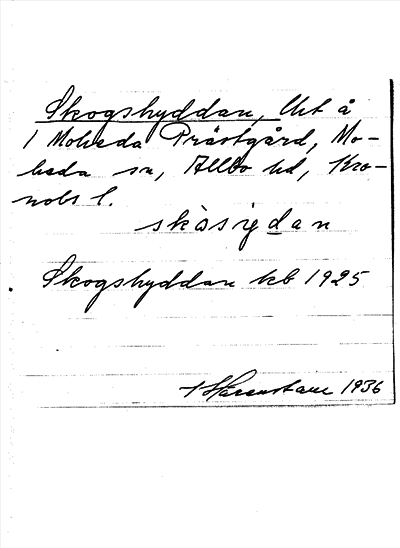 Skogshyddan, lht å
1 Moheda Prästgård, Mo-
heda sn, Allbo hd, Kro-
nobs l.
skɷsiɡdan
Skogshyddan kb 1925
Härenstam 1936